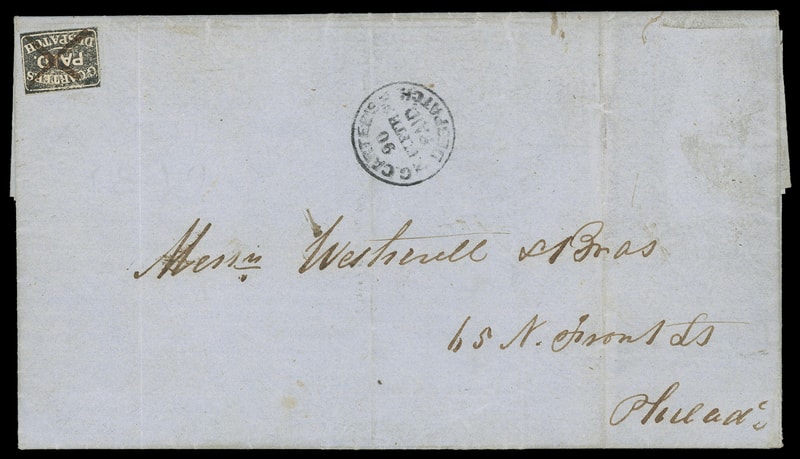 G. CARTER'S
PAID.
DESPATCH
G. CARTER'S
PAID
DESPATCH
Messrs Wetherill & Bros
65 N. Front St
Philada